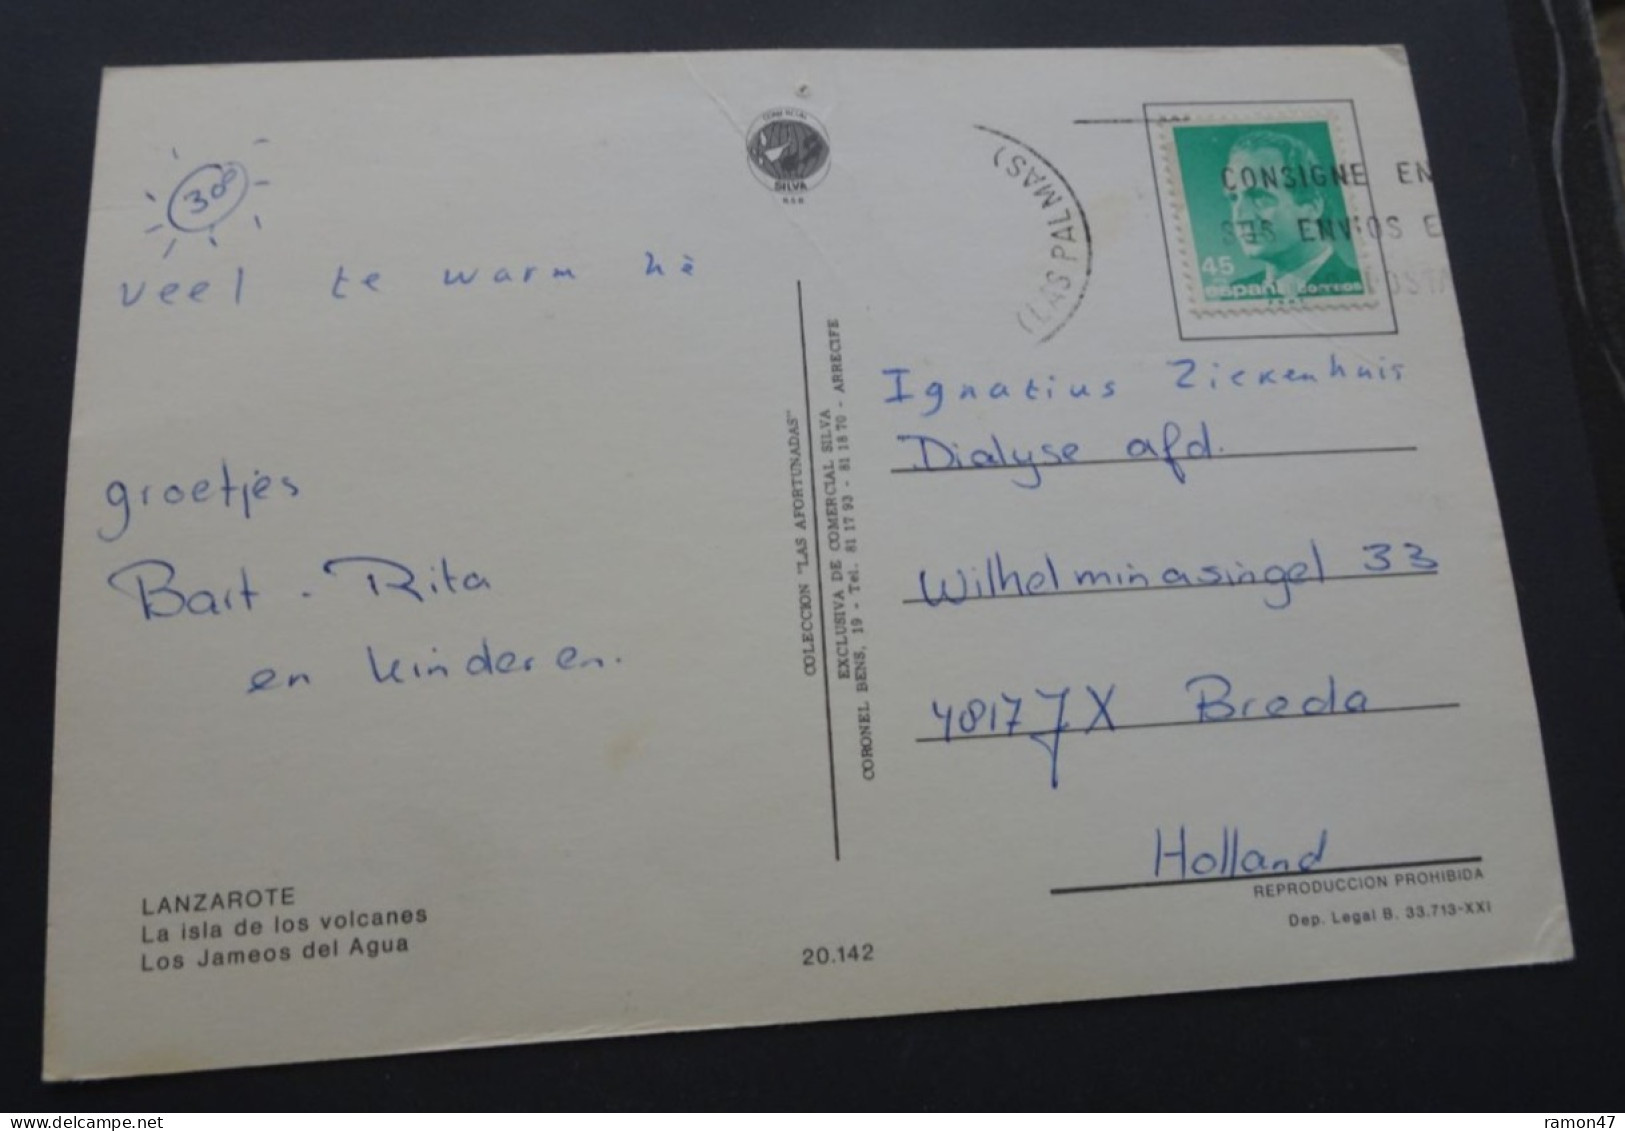 30°
veel te warm hè
groetjes
Bart - Rita
en kinderen.
LANZAROTE
La isla de los volcanes
Los Jameos del Agua
COMERCIAL
SILVA
COLECCION "LAS AFORTUNADAS"
EXCLUSIVA DE COMERCIAL SILVA
CORONEL BENS, 19 - Tel. 81 17 93 - 81 18 70 - ARRECIFE
20.142
(LAS PALMAS)
CONSIGNE EN
SUS ENVIOS E
POSTA
45
españa correos
Ignatius Ziekenhuis
Dialyse afd.
Wilhelminasingel 33
4817 JX Breda
Holland
REPRODUCCION PROHIBIDA
Dep. Legal B. 33.713-XXI
ramon47